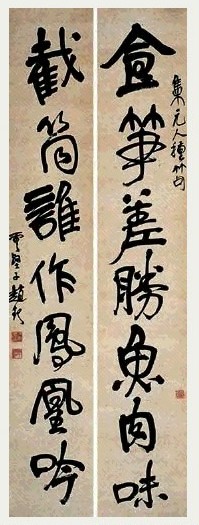 食笋差勝魚肉味
集元人種竹句
截筒誰作鳳凰吟
子趙